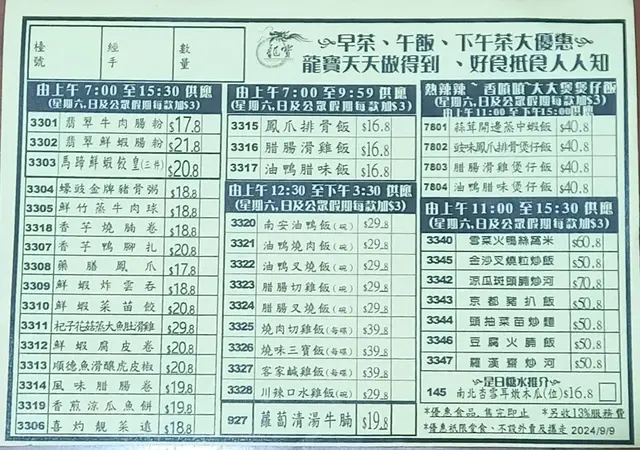 檯號
經手
數量
龍寶
早茶、午飯、下午茶大優惠
龍寶天天做得到、好食抵食人人知
由上午7:00至15:30供應
(星期六、日及公眾假期每款加$3)
3301 翡翠牛肉腸粉 $17.8
3302 翡翠鮮蝦腸粉 $21.8
3303 馬蹄鮮蝦餃皇(三件) $20.8
3304 蠔豉金牌豬骨粥 $18.8
3305 鮮竹蒸牛肉球 $18.8
3318 香芋燒腩卷 $18.8
3307 香芋鴨腳扎 $20.8
3308 藥膳鳳爪 $17.8
3309 鮮蝦炸雲吞 $18.8
3310 鮮蝦菜苗餃 $20.8
3311 杞子花菇蒸大魚肚滑雞 $29.8
3312 鮮蝦腐皮卷 $20.8
3313 順德魚滑釀虎皮椒 $20.8
3314 風味腊腸卷 $19.8
3319 香煎涼瓜魚餅 $19.8
3306 喜灼靚菜遠 $18.8
由上午7:00至9:59供應
(星期六、日及公眾假期每款加$3)
3315 鳳爪排骨飯 $16.8
3316 腊腸滑雞飯 $16.8
3317 油鴨腊味飯 $16.8
由上午12:30至下午3:30供應
(星期六、日及公眾假期每款加$3)
3320 南安油鴨飯(碗) $29.8
3321 油鴨燒肉飯(碗) $29.8
3322 油鴨叉燒飯(碗) $29.8
3323 腊腸切雞飯(碗) $29.8
3324 腊腸叉燒飯(碗) $29.8
3325 燒肉切雞飯(每碟) $39.8
3326 燒味三寶飯(每碟) $39.8
3327 客家鹹雞飯(每碟) $39.8
3328 川辣口水雞飯(碗) $29.8
927 蘿蔔清湯牛腩 $19.8
熱辣辣、香噴噴大大煲煲仔飯
由上午11:00至下午15:00供應
(星期六、日及公眾假期每款加$3)
7801 蒜茸開邊蒸中蝦飯 $40.8
7802 豉味鳳爪排骨煲仔飯 $40.8
7803 腊腸滑雞煲仔飯 $40.8
7804 油鴨腊味煲仔飯 $40.8
由上午11:00至15:30供應
(星期六、日及公眾假期每款加$3)
3340 雪菜火鴨絲窩米 $60.8
3345 金沙叉燒粒炒飯 $50.8
3342 涼瓜斑頭腩炒河 $70.8
3343 京都豬扒飯 $50.8
3344 頭抽菜苗炒麵 $50.8
3346 豆腐火腩飯 $50.8
3347 羅漢齋炒河 $50.8
是日糖水推介
145 南北杏雪耳燉木瓜(位) $16.8
*優惠食品,售完即止 *另收13%服務費
*優惠祇限堂食、不設外賣及攜走 2024/9/9